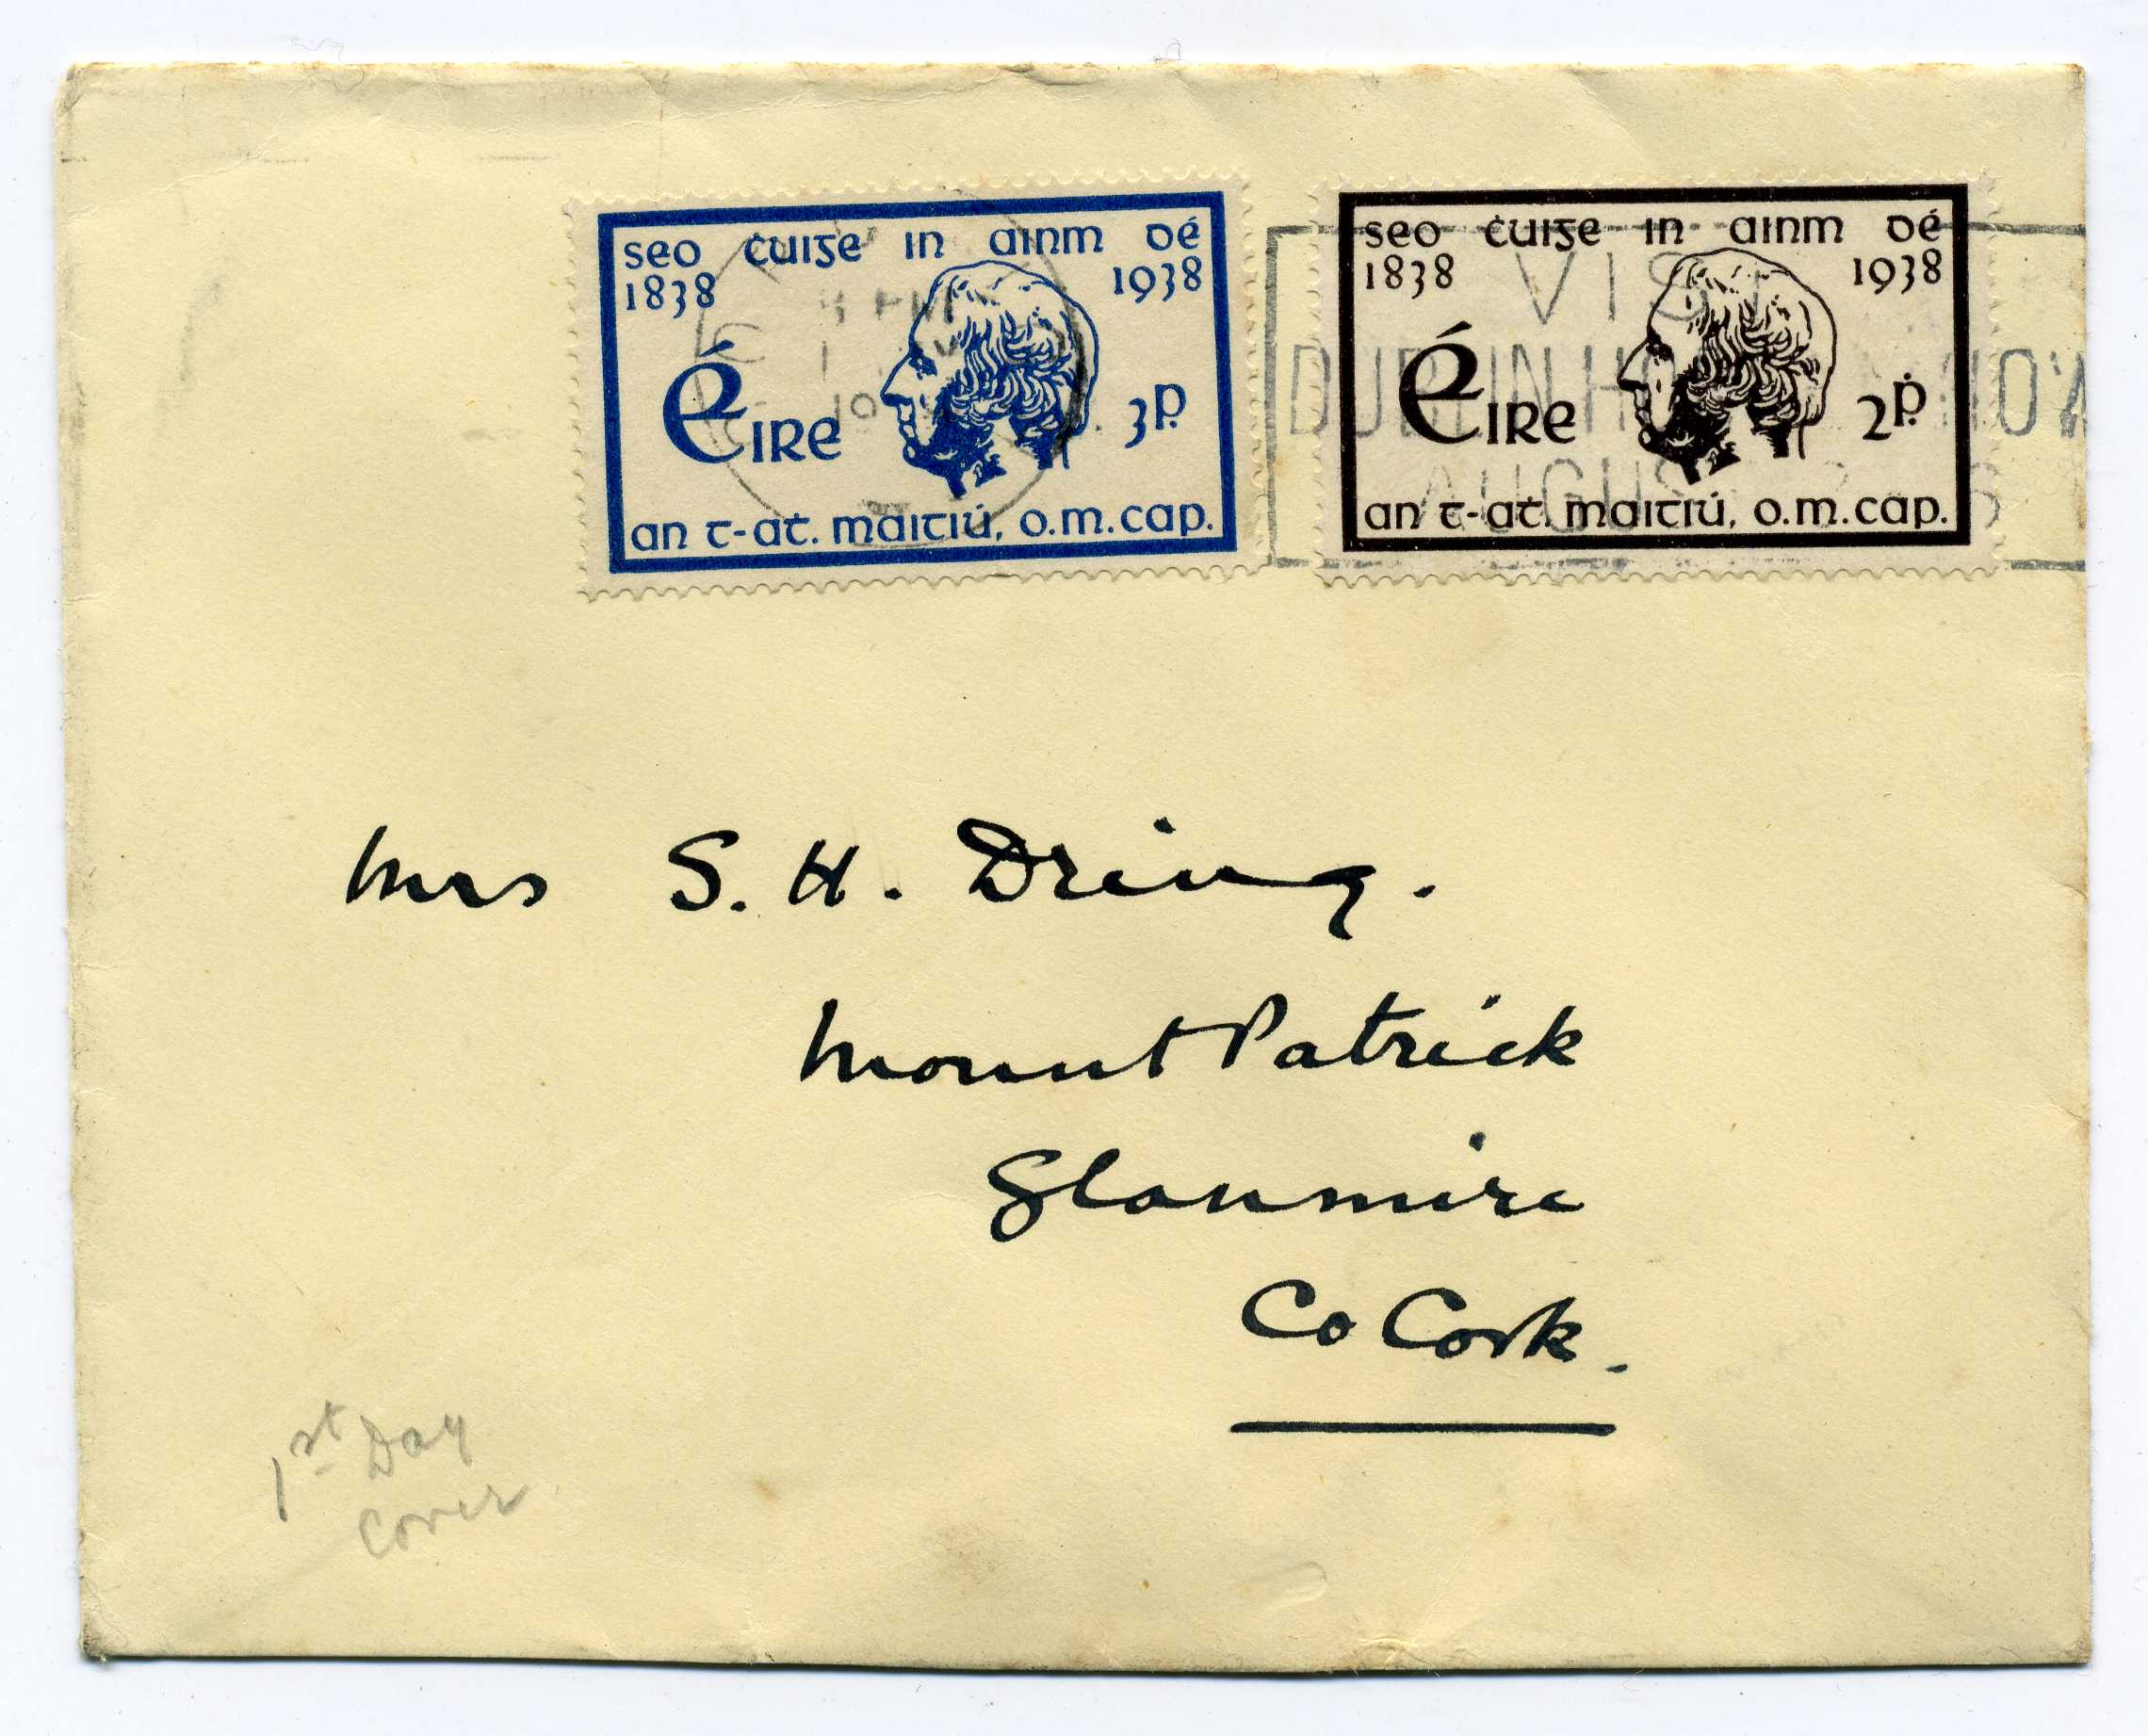 seo ċuiᵹe in ainm dé
1838 1938
Éire 3p.
an t-aṫ. maitiú, o.m.cap.
seo ċuiᵹe in ainm dé
1838 1938
Éire 2ṗ.
an t-aṫ. maitiú, o.m.cap.
4 PM
DUBLIN
AUGUST
Mrs S. H. Dring.
Mount Patrick
Glanmire
Co Cork.
1st Day
Cover